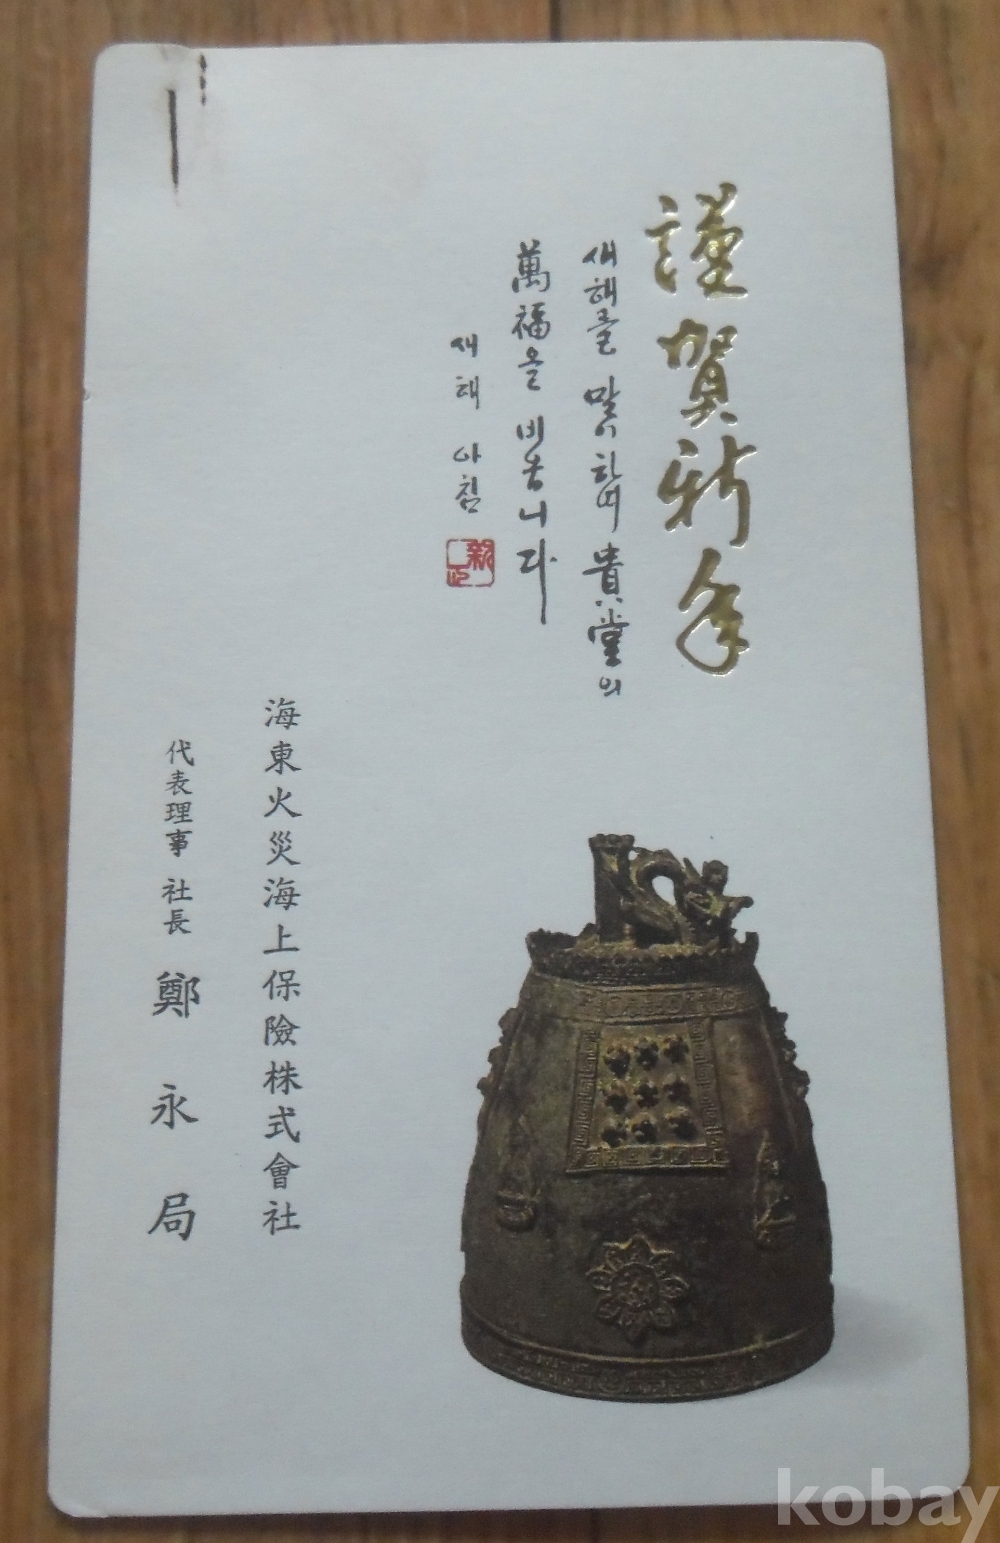 謹賀新年
새해를 맞이하며 貴堂의
萬福을 비옵니다
새해 아침
新正
海東火災海上保險株式會社
代表理事 社長 鄭永局
kobay